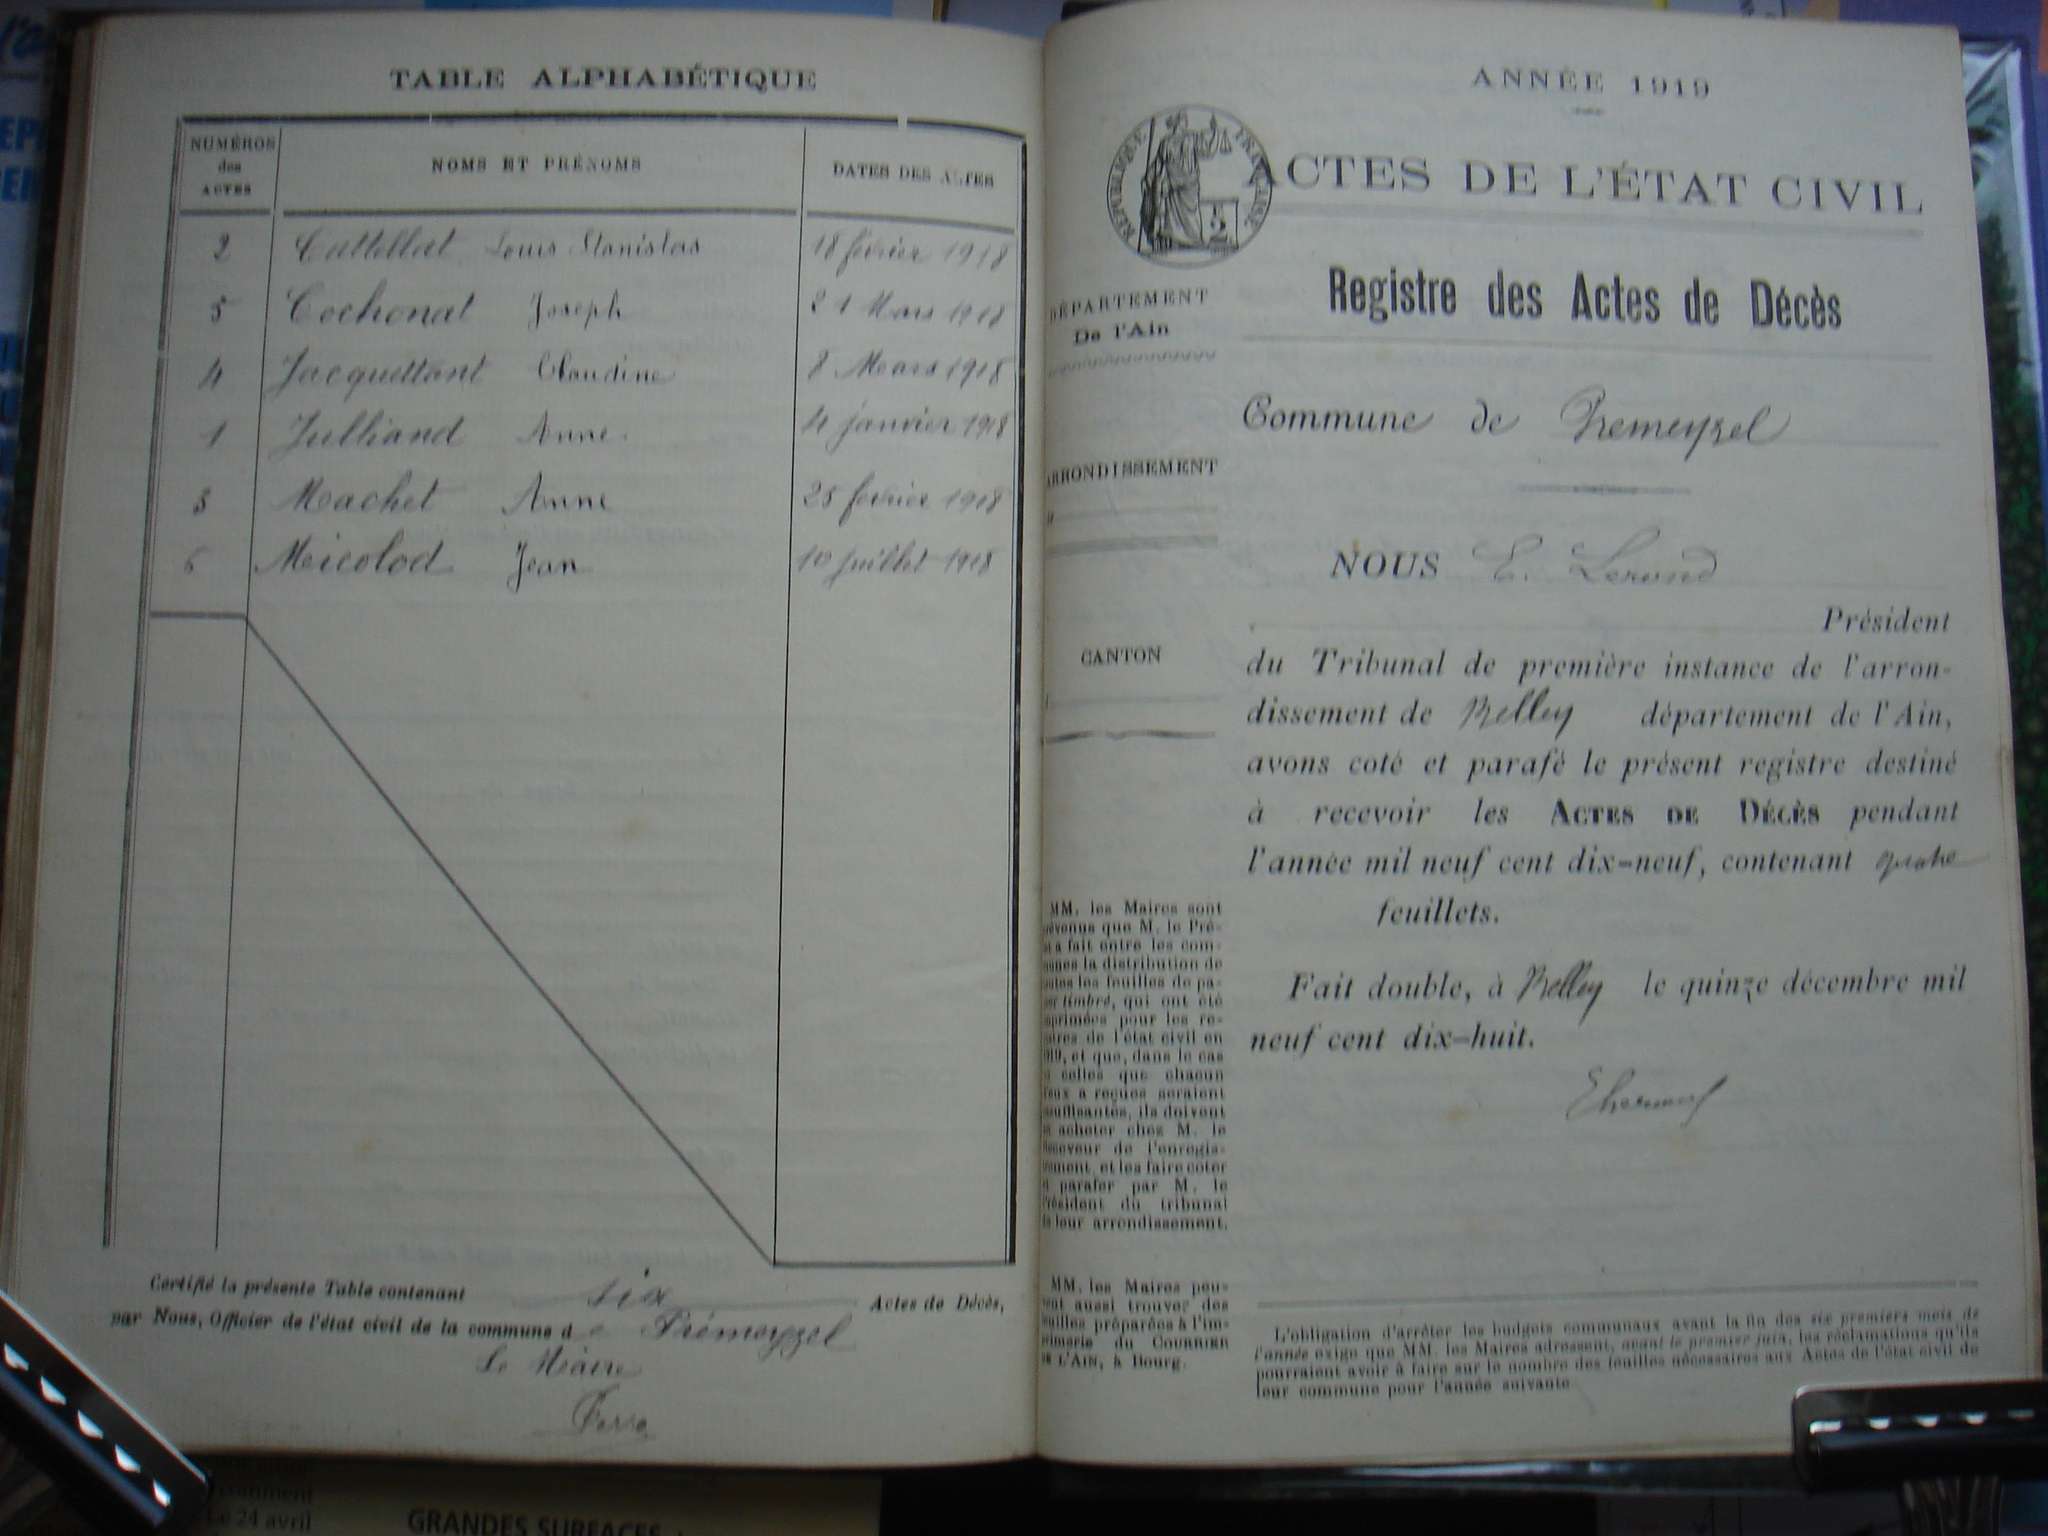 TABLE ALPHABÉTIQUE
NUMÉROS des ACTES
NOMS ET PRÉNOMS
DATES DES ACTES
2 Cattellat Louis Stanislas 18 février 1918
5 Cochonat Joseph 21 Mars 1918
4 Jacquettant Claudine 8 Mars 1918
1 Julliand Anne 4 janvier 1918
3 Machet Anne 25 février 1918
6 Micolod Jean 10 juillet 1918
Certifié la présente Table contenant six Actes de Décès,
par Nous, Officier de l'état civil de la commune de Prémeyzel
Le Maire
ANNÉE 1919
RÉPUBLIQUE FRANÇAISE
2
ACTES DE L'ÉTAT CIVIL
Registre des Actes de Décès
DÉPARTEMENT
De l'Ain
Commune de Premeyzel
ARRONDISSEMENT
NOUS E. Lerond
Président
CANTON
du Tribunal de première instance de l'arron-
dissement de Belley département de l'Ain,
avons coté et parafé le présent registre destiné
à recevoir les ACTES DE DÉCÈS pendant
l'année mil neuf cent dix-neuf, contenant quatre
feuillets.
Fait double, à Belley le quinze décembre mil
neuf cent dix-huit.
MM. les Maires sont
prévenus que M. le Pré-
fet a fait entre les com-
munes la distribution de
toutes les feuilles de pa-
pier timbré, qui ont été
imprimées pour les re-
gistres de l'état civil en
1919, et que, dans le cas
où celles que chacun
d'eux a reçues seraient
insuffisantes, ils doivent
en acheter chez M. le
Receveur de l'enregis-
trement, et les faire coter
et parafer par M. le
Président du tribunal
de leur arrondissement.
MM. les Maires peu-
vent aussi trouver des
feuilles préparées à l'im-
primerie du COURRIER
DE L'AIN, à Bourg.
L'obligation d'arrêter les budgets communaux avant la fin des six premiers mois de
l'année exige que MM. les Maires adressent, avant le premier juin, les réclamations qu'ils
pourraient avoir à faire sur le nombre des feuilles nécessaires aux Actes de l'état civil de
leur commune pour l'année suivante
Le 24 avril
GRANDES SURFACES